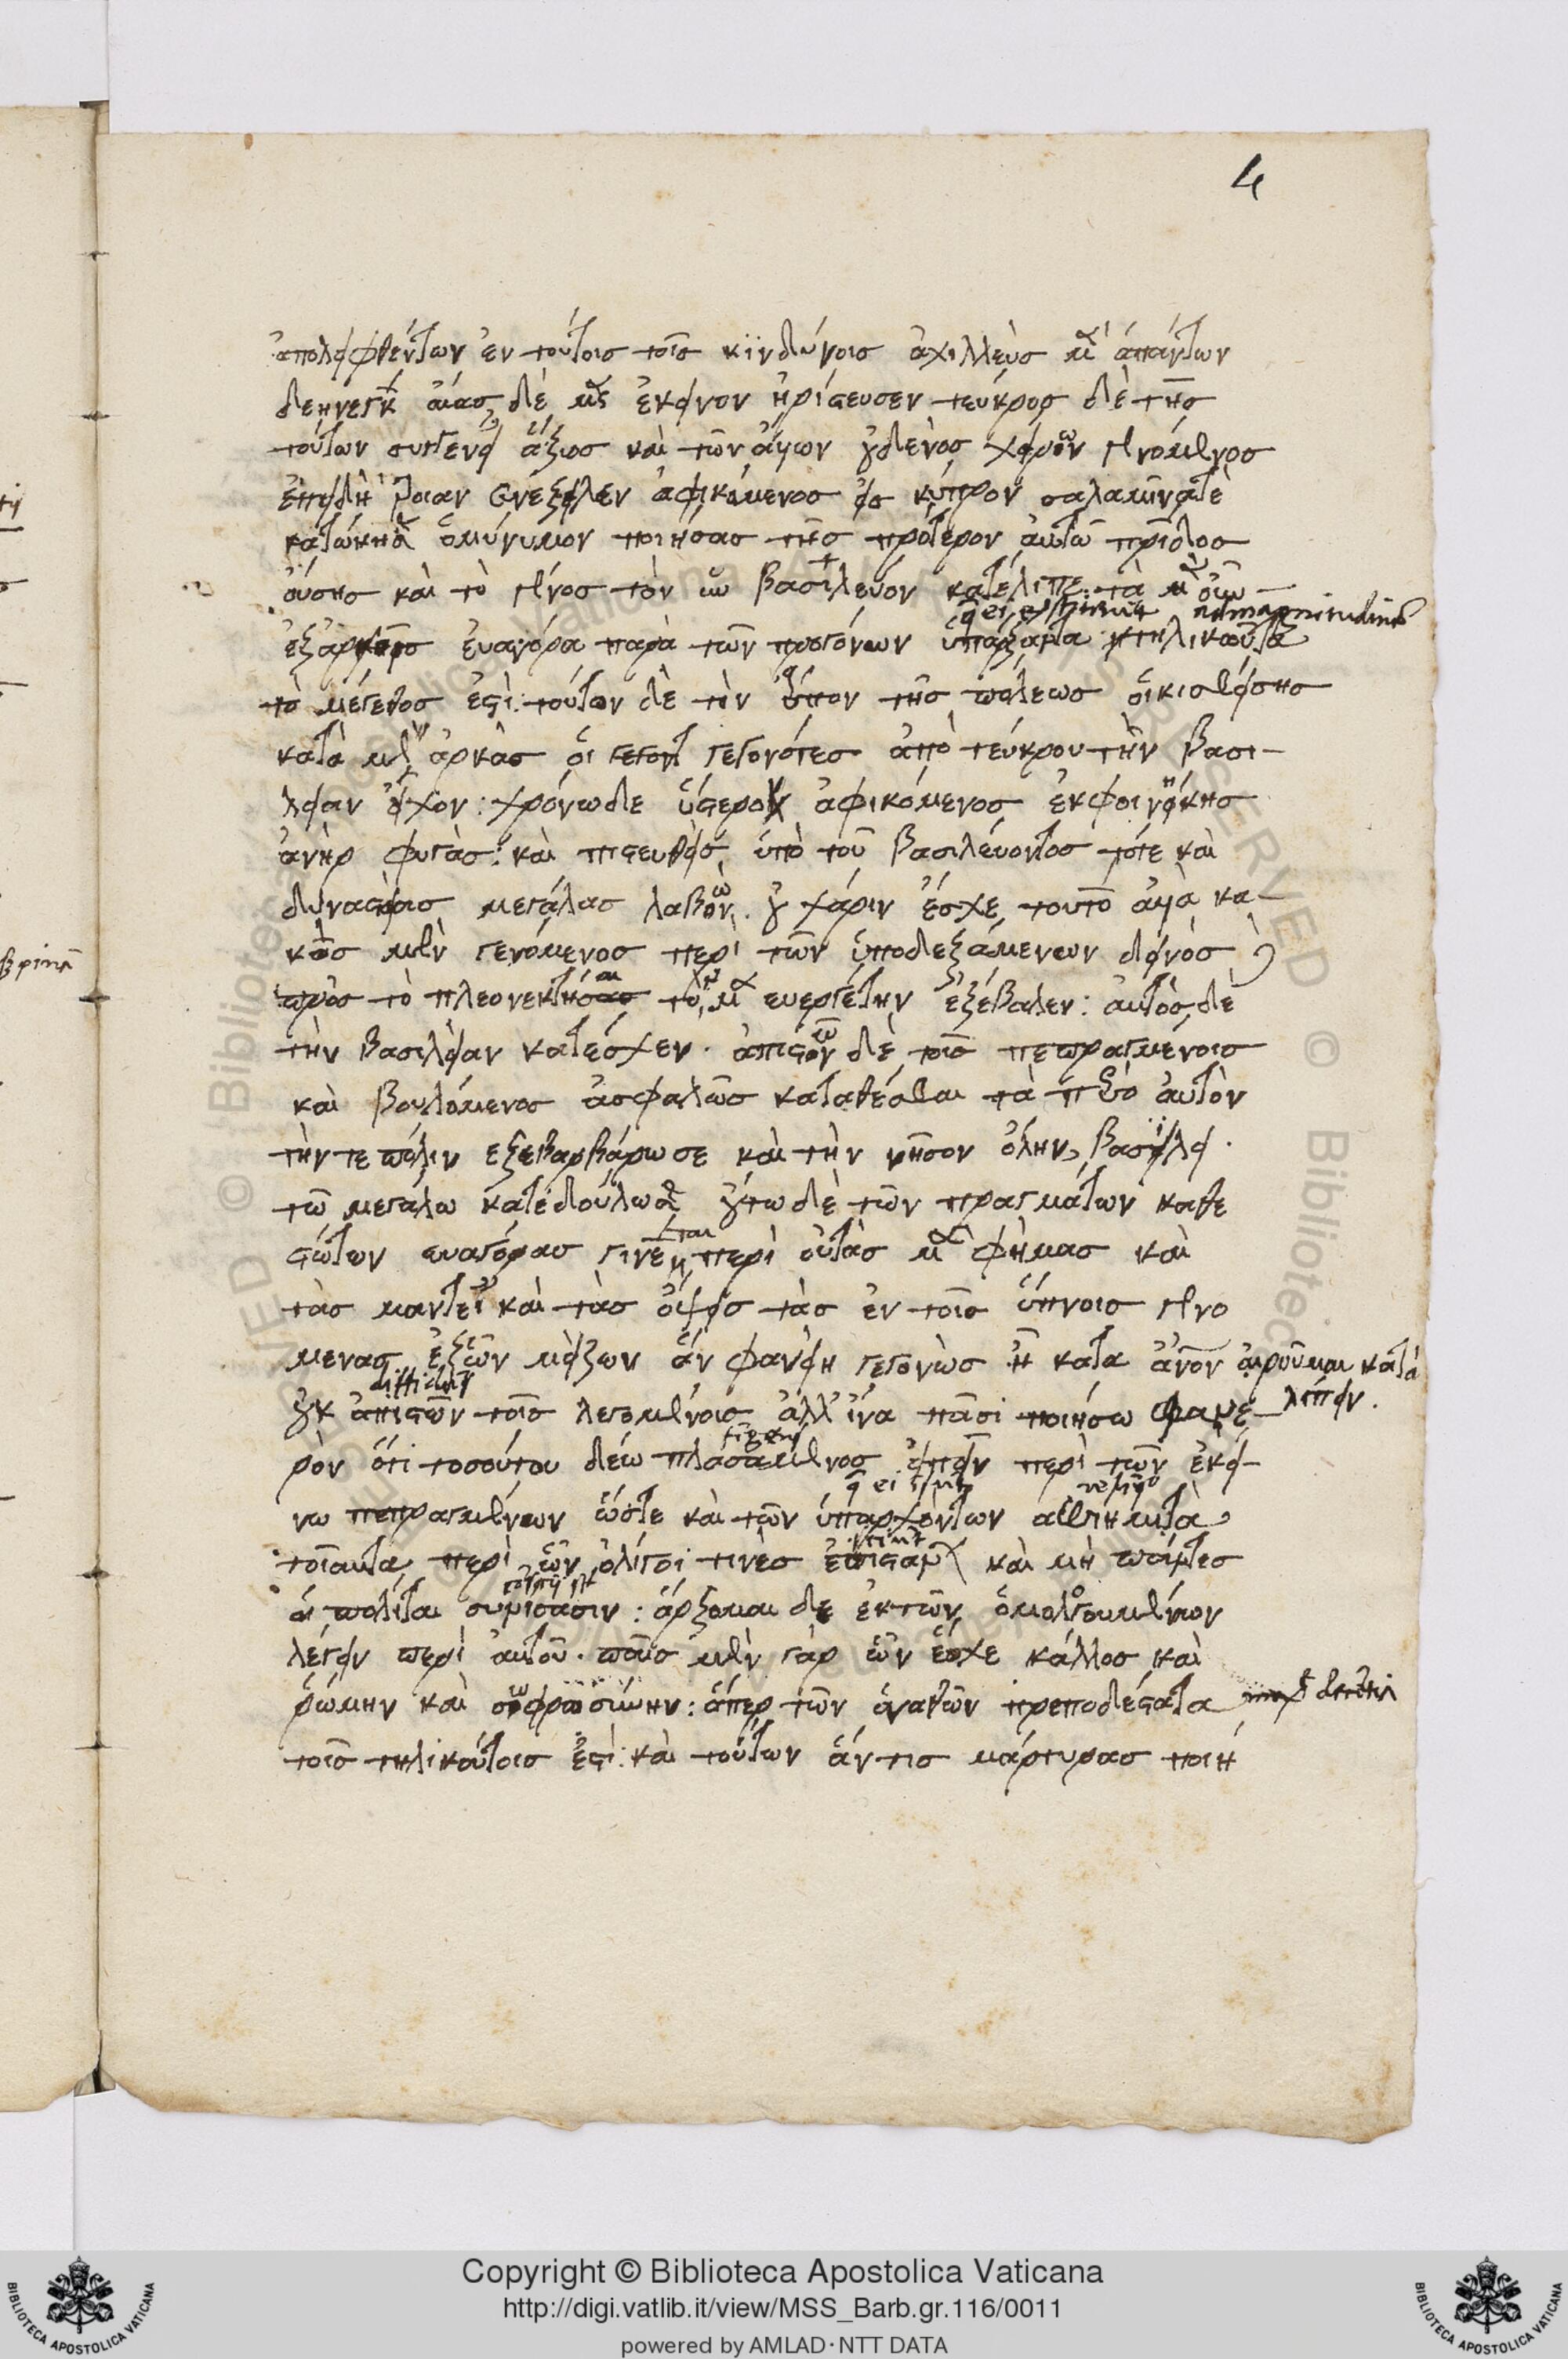 4
ἀπολειφθέντων ἐν τούτοις τοῖς κινδύνοις ἀχιλλεὺς μὲν ἁπάντων
διήνεγκεν αἴας δὲ μετ' ἐκεῖνον ἠρίστευσεν τεύκρος δὲ τῆς
τούτων συγγενείας ἄξιος καὶ τῶν ἄλλων οὐδενὸς χείρων γενόμενος
ἐπειδὴ τροίαν συνεξεῖλεν ἀφικόμενος εἰς κύπρον σαλαμῖνά τε
κατώκησε ὁμώνυμον ποιήσας τῆς πρότερον αὐτῶ πατρίδος
οὔσης καὶ τὸ γένος τὸ νῦν βασιλεῦον κατέλιπε: τὰ μὲν οὖν
ἐξ ἀρχῆς ἐυαγόρα παρὰ τῶν προγόνων ὑπάρξαντα τηλικαῦτα
τὸ μέγεθος ἐστὶ: τοῦτον δὲ τὸν τρόπον τῆς πόλεως οἰκισθείσης
κατὰ μὲν ἀρχὰς οἱ γεγονότες ἀπὸ τεύκρου τὴν βασι-
λείαν εἶχον: χρόνω δε ὕστερον ἀφικόμενος ἐκ φοινίκης
ἀνὴρ φυγὰς: καὶ πιστευθεὶς ὑπὸ τοῦ βασιλεύοντος τότε καὶ
δυναστείας μεγάλας λαβὼν. οὐ χάριν ἔσχε τούτων ἀλλὰ κα-
κὸς μὲν γενόμενος περὶ τὸν ὑποδεξάμενον δεινὸς δὲ
πρὸς τὸ πλεονεκτῆσαι τὸν μὲν ευεργέτην ἐξέβαλεν: αὐτὸς δὲ
τὴν βασιλείαν κατέσχεν. ἀπιστῶν δὲ τοῖς πεπραγμένοις
καὶ βουλόμενος ἀσφαλῶς καταθέσθαι τὰ περὶ αὐτὸν
τήν τε πόλιν ἐξεβαρβάρωσε καὶ τὴν νῆσον ὅλην βασιλεῖ
τῶ μεγάλω κατεδούλωσε οὕτω δὲ τῶν πραγμάτων καθε
στώτων ευαγόρας γίνεται περὶ οὗ τὰς μὲν φήμας καὶ
τὰς μαντείας καὶ τὰς ὄψεις τὰς ἐν τοῖς ὕπνοις γενο
μενας ἐξ ὧν μείζων ἂν φανείη γεγονὼς ἢ κατὰ ἄνθρωπον αἱροῦμαι κατα
λιπεῖν.
οὐκ ἀπιστῶν τοῖς λεγομένοις ἀλλ' ἵνα πᾶσι ποιήσω φανε-
ρὸν ὅτι τοσούτου δέω πλασάμενος εἰπεῖν περὶ τῶν ἐκεί-
νω πεπραγμένων ὥστε καὶ τῶν ὑπαρχόντων ἀφίημι τὰ
τοιαῦτα περὶ ὧν ὀλίγοι τινὲς ἐπίστανται καὶ μὴ πάντες
οἱ πολῖται συνίσασιν: ἄρξομαι δε ἐκ τῶν ὁμολογουμένων
λέγειν περὶ αὐτοῦ. παῖς μὲν γὰρ ὢν ἔσχε κάλλος καὶ
ῥώμην καὶ σωφροσύνην: ἅπερ τῶν ἀγαθῶν πρεπωδέστατα
τοῖς τηλικούτοις ἐστὶ: καὶ τούτων ἄν τις μάρτυρας ποιή
Copyright © Biblioteca Apostolica Vaticana
http://digi.vatlib.it/view/MSS_Barb.gr.116/0011
powered by AMLAD·NTT DATA